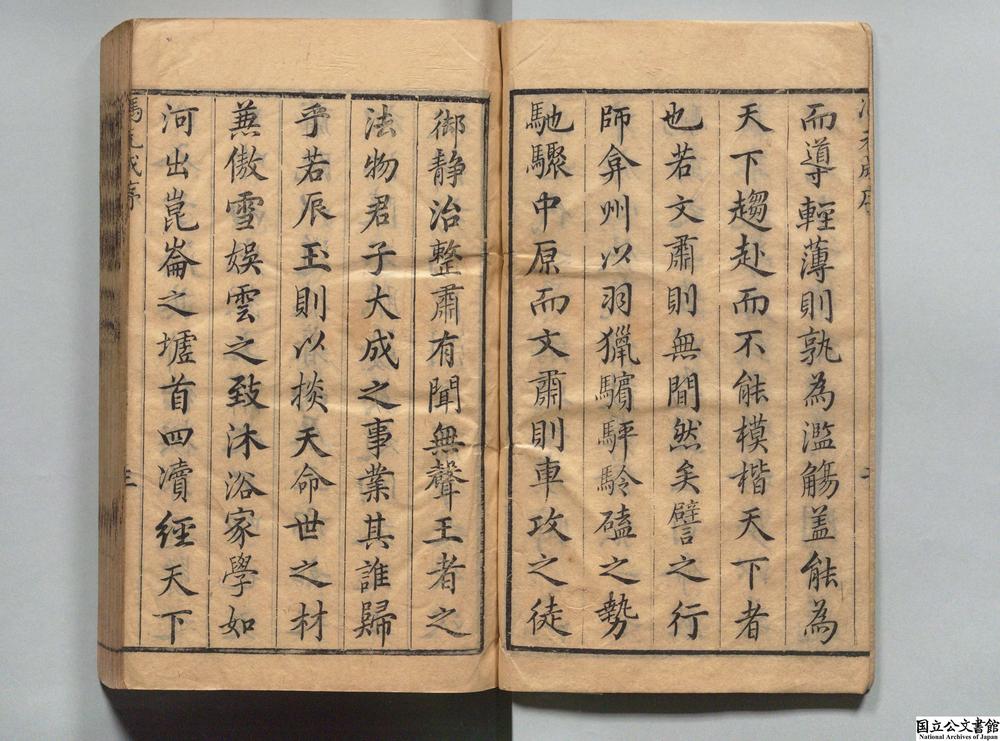 而導輕薄則孰為濫觴盖能為
天下趨赴而不能模楷天下者
也若文肅則無間然矣譬之行
師弇州以羽獵驞駍駖磕之勢
馳驟中原而文肅則車攻之徒
御靜治整肅有聞無聲王者之
法物君子大成之事業其誰歸
乎若辰玉則以掞天命世之材
蕪傲雪娛雲之致沐浴家學如
河出崑崙之墟首四瀆經天下
馮元成序
三
国立公文書館
National Archives of Japan